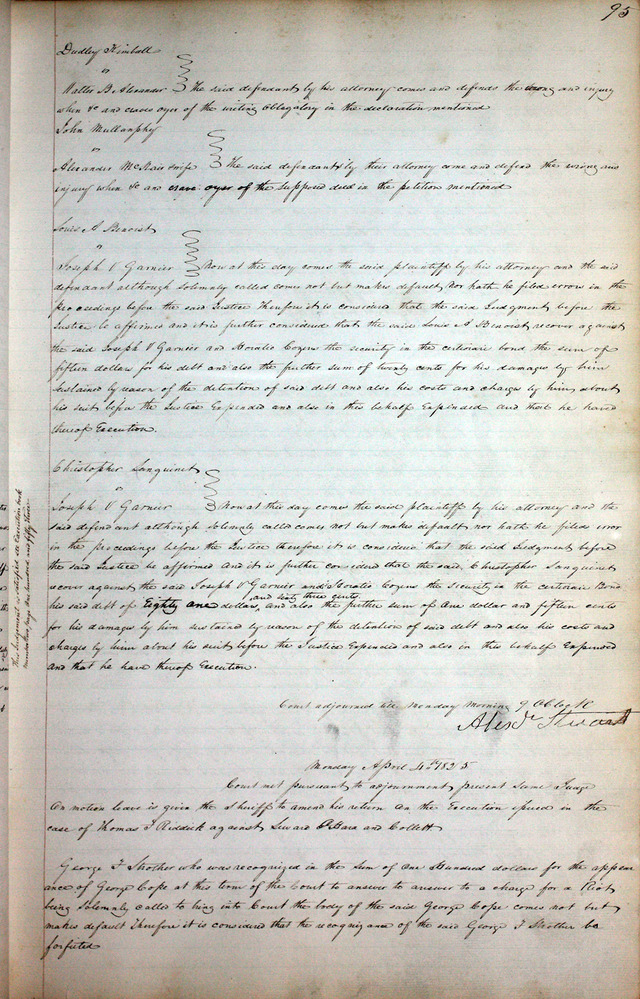 95
Dudley Kimball
"
Walter B Alexander The said defendant by his attorney comes and defends the wrong and injury
when &c and craves oyer of the writing obligatory in the declaration mentioned
John Mullanphy
"
Alexander McNair & wife The said defendants by their attorney come and defend the wrong and
injury when &c and crave oyer of the Supposed deed in the petition mentioned
Louis A Benoist
"
Joseph V Garnier Now at this day comes the said plaintiff by his attorney and the said
defendant although Solemnly called comes not but makes default, nor hath he filed errors in the
proceedings before the said Justice Therefore it is considered that the said Judgment before the
Justice be affirmed and it is further considered that the said Louis A Benoist recover against
the said Joseph V Garnier and Horatio Cozens the security in the certiorari bond the sum of
fifteen dollars for his debt and also the further sum of twenty cents for his damages by him
Sustained by reason of the detention of said debt and also his costs and charges by him about
his suit before the Justice Expended and also in this behalf Expended and that he have
thereof Execution.
Christopher Sanguinet
"
Joseph V Garnier Now at this day comes the said plaintiff by his attorney and the
said defendant although Solemnly called comes not but makes default nor hath he filed error
in the proceedings before the Justice therefore it is considered that the said Judgment before
the said Justice be affirmed and it is further considered that the said Christopher Sanguinet
recover against the said Joseph V Garnier and Horatio Cozens the Security in the certiorari Bond
and sixty three cents
his said debt of Eighty one dollars, and also the further sum of one dollar and fifteen cents
for his damages by him sustained by reason of the detention of said debt and also his costs and
charges by him about his suit before the Justice Expended and also in this behalf Expended
and that he have thereof Execution.
This Judgment is satisfied see Execution book
number two, page one hundred and fifty three
Court adjourned till Monday Morning 9 OClock
Alexr Stuart
Monday April 4th 1825
Court met pursuant to adjournment, present Same Judge
On motion leave is given the Sheriff to amend his return on the Execution issued in the
case of Thomas F Riddick against Seward OHara and Collett
George F Strother who was recognized in the Sum of One Hundred dollars for the appear
ance of George Cope at this term of the Court to answer to answer to a charge for a Riot
being Solemnly called to bring into Court the body of the said George Cope comes not but
makes default Therefore it is considered that the recognizance of the said George F Strother be
forfeited